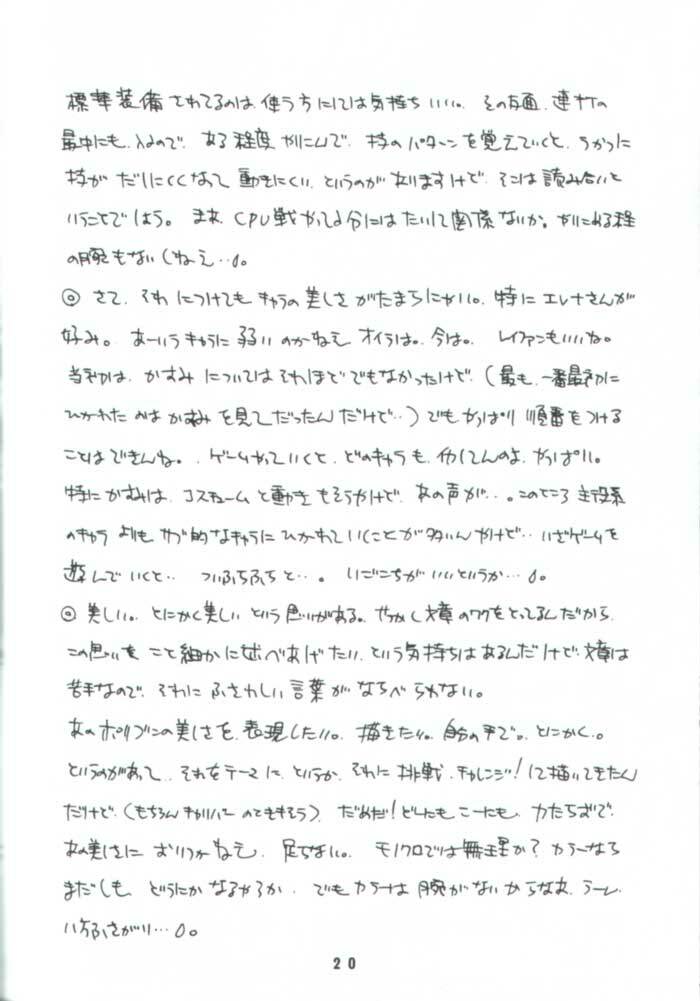 標準装備されてるのは、使う方にしては気持ちいい。その反面、連打の
最中にも、入るので、ある程度 やりこんで、技のパターンを覚えていくと、うかつに
技が だしにくくなって 動きにくい、というのがありますけど、そこは読み合いと
いうことでしょう。まあ、CPU戦やってる分にはたいして関係ないか。やりこめる程
の腕もないしねえ…。
◎ さて、それにつけても キャラの美しさがたまらにゃい。特に エレナさんが
好み。あーいうキャラに弱いのかねえ オイラは。今は。 レイファンもいいね。
当初は、かすみ についてはそれほどでもなかったけど、(最も、一番最初に
ひかれたのは かすみを見てだったんだけど…)でもやっぱり 順番をつける
ことはできんね。 ゲームやっていくと、どのキャラも、イカしてんのよ、やっぱり。
特にかすみは、コスチュームと動きもそうやけど、あの声が…。このところ 主役系
のキャラ よりも サブ的なキャラに ひかれていくことが多いんやけど… いざゲームを
遊んでいくと… ついふらふらと…。 いごこちがいいというか…。
◎ 美しい。とにかく美しい という思いがある。せっかく文章のワクをとってるんだから、
この思いを こと細かに述べあげたい、という気持ちはあるんだけど、文章は
苦手なので、それに ふさわしい言葉が ならべられない。
あのポリゴンの美しさを、表現したい。描きたい。自分の手で。とにかく。
というのがあって、それをテーマに、というか、それに挑戦、チャレンジ!して描いてきたん
だけど、(もちろん キャリバー のときもそう)、だめだ!どーしたもこーしたも、力たらずで、
あの美しさに おいつかねえ、足らない。 モノクロでは無理か?カラーなら
まだしも どうにか なるやろか、 でもカラーは 腕がないからなあ、うーし、
八方ふさがり…。
20